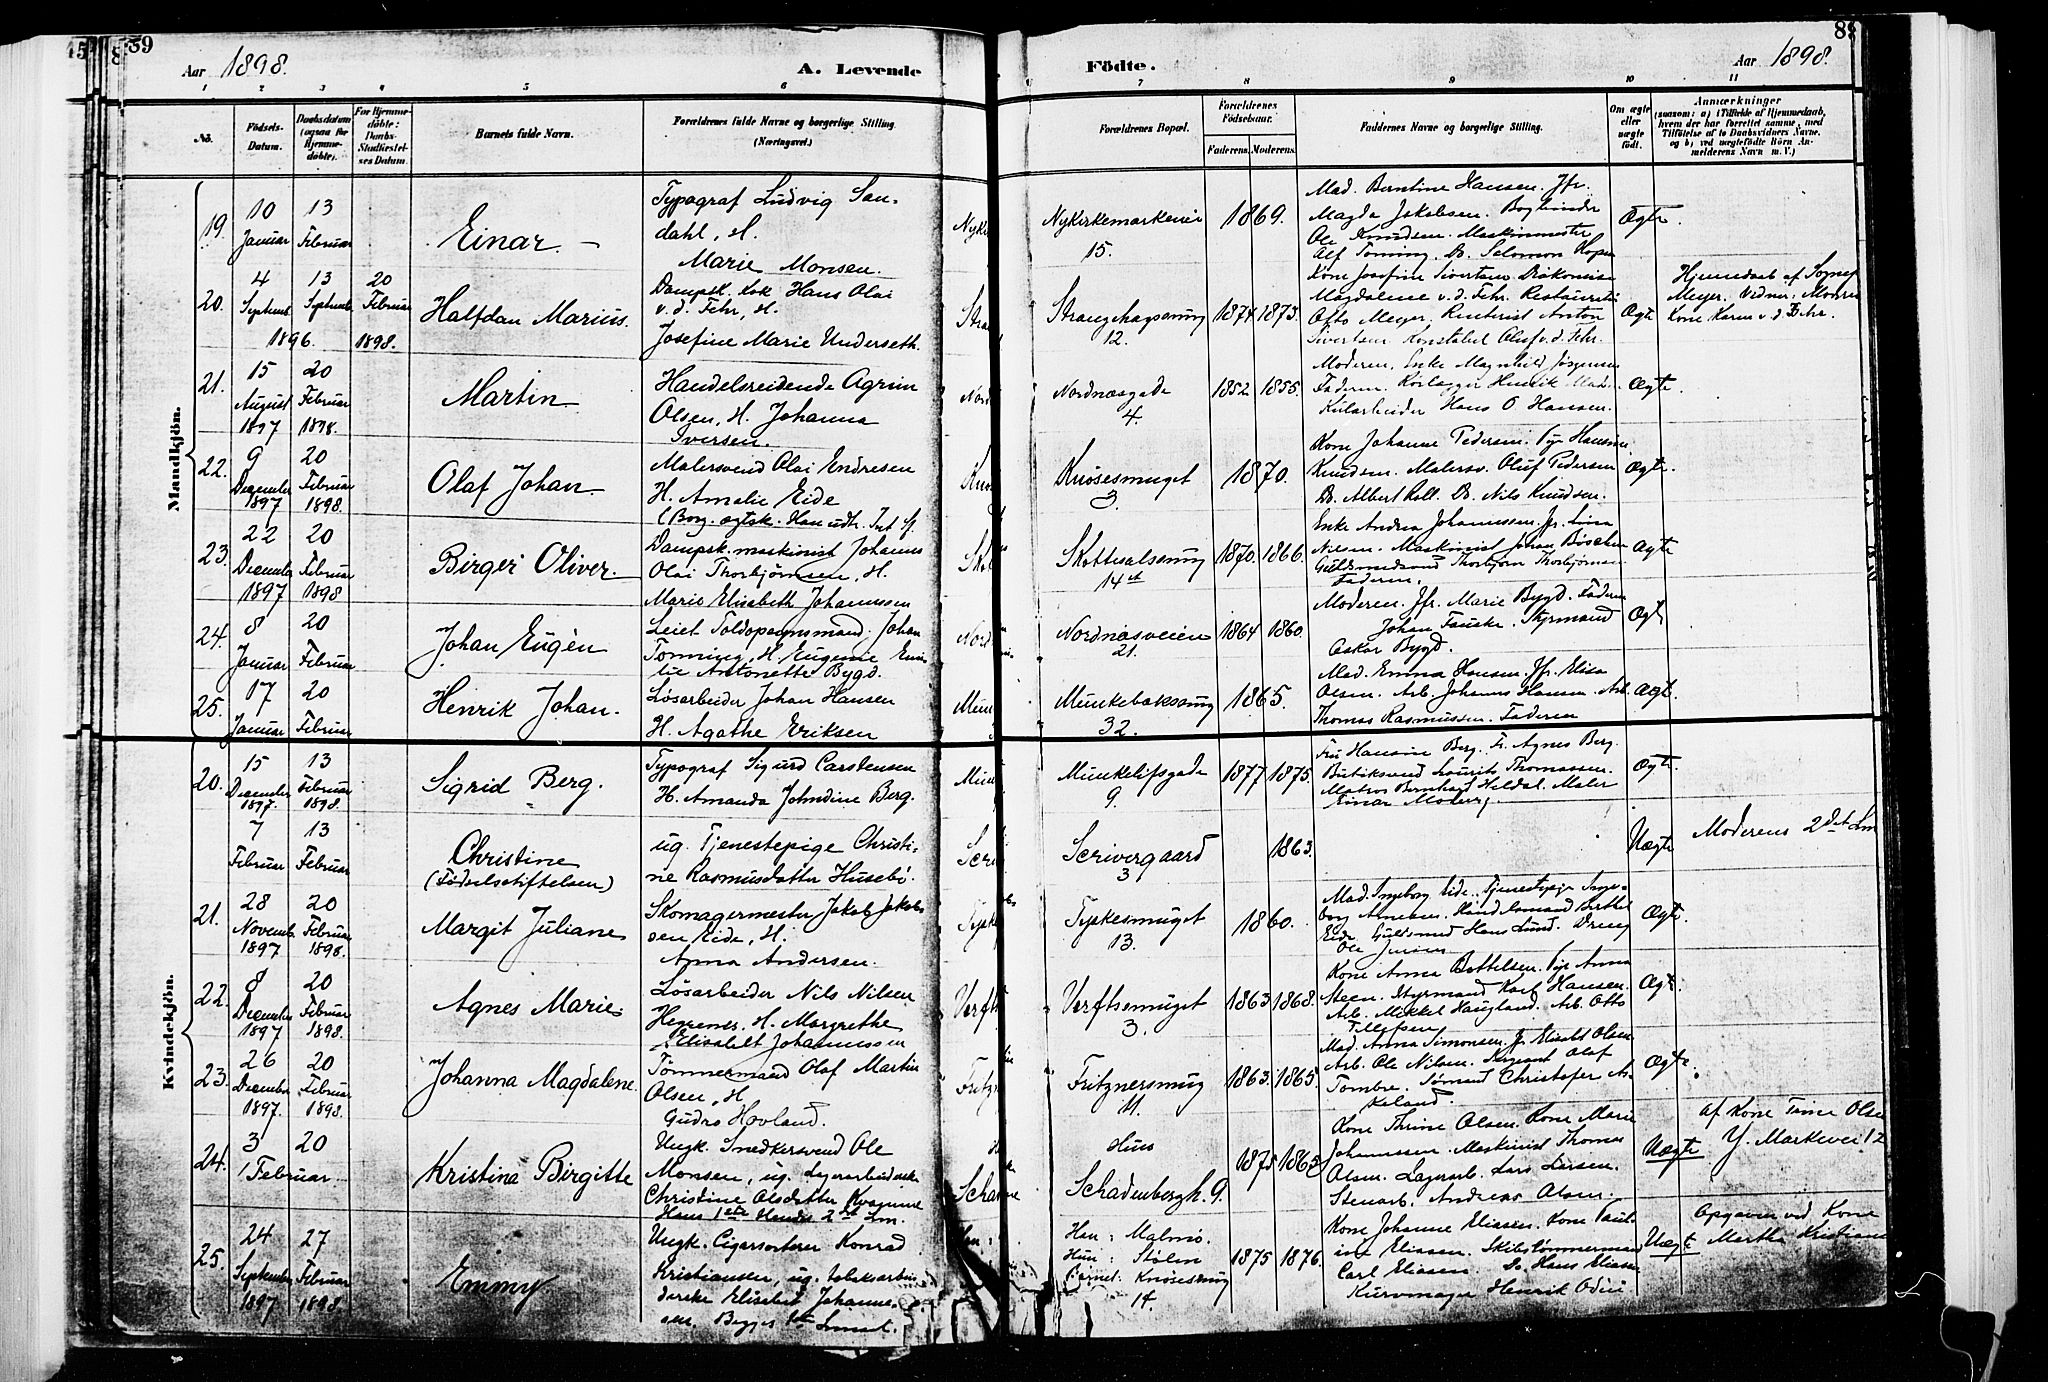 39
Aar 1898.
A. Levende
Födte.
Aar 1898.
1 2 3 4 5 6 7 8 9 10 11
No.
Födsels-Datum.
Daabsdatum (ogsaa for Hjemmedöbte).
For Hjemmedöbte: Daabs Stadfæstelses Datum.
Barnets fulde Navn.
Forældrenes fulde Navne og borgerlige Stilling.
(Næringsvei.)
Forældrenes Bopæl.
Forældrenes Födselsaar.
Faderens. Moderens.
Faddernes Navne og borgerlige Stilling.
Om ægte eller uægte födt.
Anmærkninger
(saasom: a) i Tilfælde af Hjemmedaab, hvem der har forrettet samme, med Tilföielse af to Daabsvidners Navne, og b) ved uægtefödte Börn Anmelderens Navn m. V.)
Mandkjön.
19. 10 Januar 13 Februar
Einar
Typograf Ludvig San-
dahl, H.
Marie Monsen.
Nykirkemarkeveien 15.
1869.
Mad. Berntine Hansen. Jfr.
Magda Jakobsen. Bogbinder
Ole Knudsen. Maskinmester
Alf Tonning. Do. Salomon
Ægte
20. 4 Septemb 13 Septemb 1896. 20 Februar 1898.
Halfdan Marius.
Dampsk. Kok Hans Olai
v. d. Fehr, H.
Josefine Marie Underseth.
Strangehagsmug 12.
1874 1873.
Kone Josefine Sivertsen Diakonisse
Magdalene v. d. Fehr. Restauratør
Otto Meyer. Anton
Sivertsen Konstabel Oluf v. d. Fehr.
Ægte
Hjemmedaab af Sognep.
Meyer. Vidner: Moderen
Kone Karen v. d. Fehr.
21. 15 August 1897 20 Februar 1898.
Martin.
Handelsreisende Agrim
Olsen, H. Johanna
Iversen.
Nordnæsgade 4.
1852 1855.
Moderen, Enke Magnhild Jørgensen
Faderen. Henrik
Kularbeider Hans O Hansen.
Ægte
22. 9 December 1897 20 Februar 1898.
Olaf Johan.
Malersvend Olai Endresen
H. Amalie Eide
(Borg. ægtsk.
Knøsesmuget 3.
1870.
Kone Johanne Pedersen. Pige
Knudsen. Malersv. Oluf Pedersen
Do. Albert Roll. Do. Nils Knudsen.
Ægte.
23. 22 December 1897 20 Februar 1898
Birger Oliver.
Dampsk. maskinist Johannes
Olai Thorbjørnsen, H.
Marie Elisabeth Johannessen
Skottesalsmug 14
1870. 1866.
Enke Andrea Johannessen. Jfr. Lina
Nilsen. Maskinist Johan
Guldsmedsvend Thorbjørn Thorbjørnsen
Faderen.
Ægte
24. 8 Januar 20 Februar
Johan Eugén
Leiet Toldopsynsmand Johan
Tonning, H. Eugenie Emi-
lie Antonette Bygd.
Nordnæsveien 21.
1864 1860.
Moderen. Jfr. Marie Bygd. Faderen
Johan Fauske. Styrmand
Oskar Bygd.
Ægt
25. 17 Januar 20 Februar
Henrik Johan.
Løsarbeider Johan Hansen
H. Agathe Eriksen
Munkebæksmug 32.
1865.
Mad. Emma Hansen. Jfr. Elisa
Olsen. Arb. Johannes Hansen. Arb.
Thomas Rasmussen. Faderen
Ægt
Kvindekjön.
20. 15 December 1897. 13 Februar 1898.
Sigrid Berg.
Typograf Sigurd Carstensen
H. Amanda Johndine Berg.
Munkelifsgade 9.
1877 1875.
Fru Hansine Berg. Fr. Agnes Berg.
Butiksvend Laurits Thomassen.
Matros Bernhard Heldal. Maler
Einar Moberg.
Ægt
7 Februar 13 Februar
Christine
(Fødselsstiftelsen)
ug. Tjenestepige Christi-
ne Rasmusdatter Husebø.
Scrivergaard 3
1863.
Uægte
Moderens 2det Lm
21. 28 Novemb 1897 20 Februar 1898.
Margit Juliane
Skomagermester Jakob Jakob-
sen Eide, H.
Anna Andersen.
Tyskesmuget 13.
1860.
Mad. Ingeborg Eide. Tjenestepige Inge-
borg Arnesen. Berthel
Eide Guldsmed Hans Lund. Dreng
Ole Jensen
Ægte.
22. 8 December 1897 20 Februar 1898.
Agnes Marie
Løsarbeider Nils Nilsen
Hegrenes, H. Margrethe
Elisabeth Johannessen
Verftsmuget 3.
1863 1868.
Kone Anna Bottelsen. Pige Anna
Steen. Styrmand Karl Hansen.
Arb. Mikkel Haugland. Arb. Otto
Tellefsen
Ægt.
23. 26 December 1897. 20 Februar 1898.
Johanna Magdalene.
Tømmermand Olaf Martin
Olsen, H
Gudro Hovland.
Fritznersmug 11.
1863. 1865.
Mad. Anna Simonsen. Jfr. Elisabet Olsen
Arb. Ole Nilsen. Sergeant Olaf
Tombre. Sømand Christofer As-
keland.
Ægte.
24. 3 Februar 20
Kristina Birgitte
Ungk. Snedkersvend Ole
Monsen, ug. Lægerarbeiderske
Christine Olsdatter Kvamme
Hans 1ste Hendes 2det Lm.
Hus
Schadenbergh. 9.
1875 1865
Kone Thrine Olsen. Kone Marie
Johannessen. Maskinist Thomas
Olsen. Lagerarb. Lars Larsen.
Stenarb. Andreas Olsen.
Uægte
af Kone Trine Olsen
Y. Markevei 12
25. 24 September 1897 27 Februar 1898.
Emmy
Ungk. Cigarsorterer Konrad
Kristiansen, ug. tobaksarbei-
derske Elisabet Johanne-
sen. Begges 1ste Lm.
Han: Malmö.
Hun: Stølen
Barnet: Knøsesmug 14.
1875 1876.
Kone Johanne Eliassen. Kone Paul-
ine Eliassen. Skibstømmermand
Carl Eliassen. Do. Hans Eliassen
Kurvmager Henrik
Uægte
Opgaven ved Kone
Martha Kristiansen